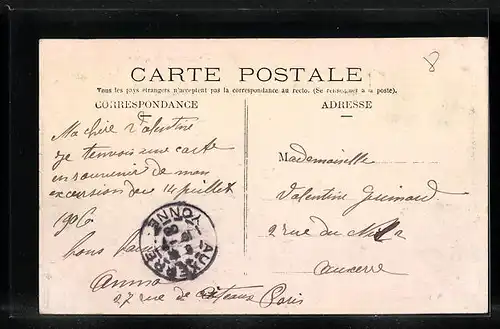 8
CARTE POSTALE
Tous les pays étrangers n'acceptent pas la correspondance au recto. (Se renseigner à la poste).
CORRESPONDANCE
ADRESSE
Ma chère Valentine
je t'envois une carte
en souvenir de mon
excursion du 14 juillet
1906
bons
anna
27 rue de Paris
AUXERRE
YONNE
Mademoiselle
Valentine Guimard
2 rue du
auxerre